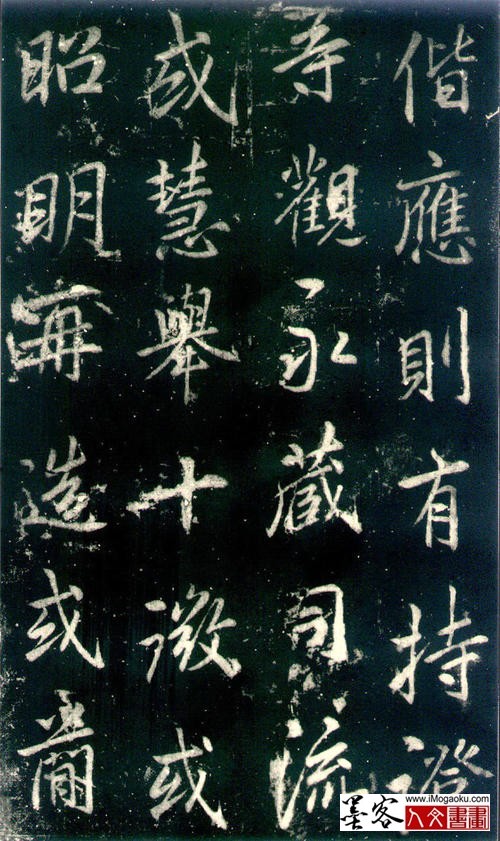 偕應則有持證
等觀永藏司流
或慧舉十徵或
昭明再造或
墨客
www.iMogaoku.com
人文書畫